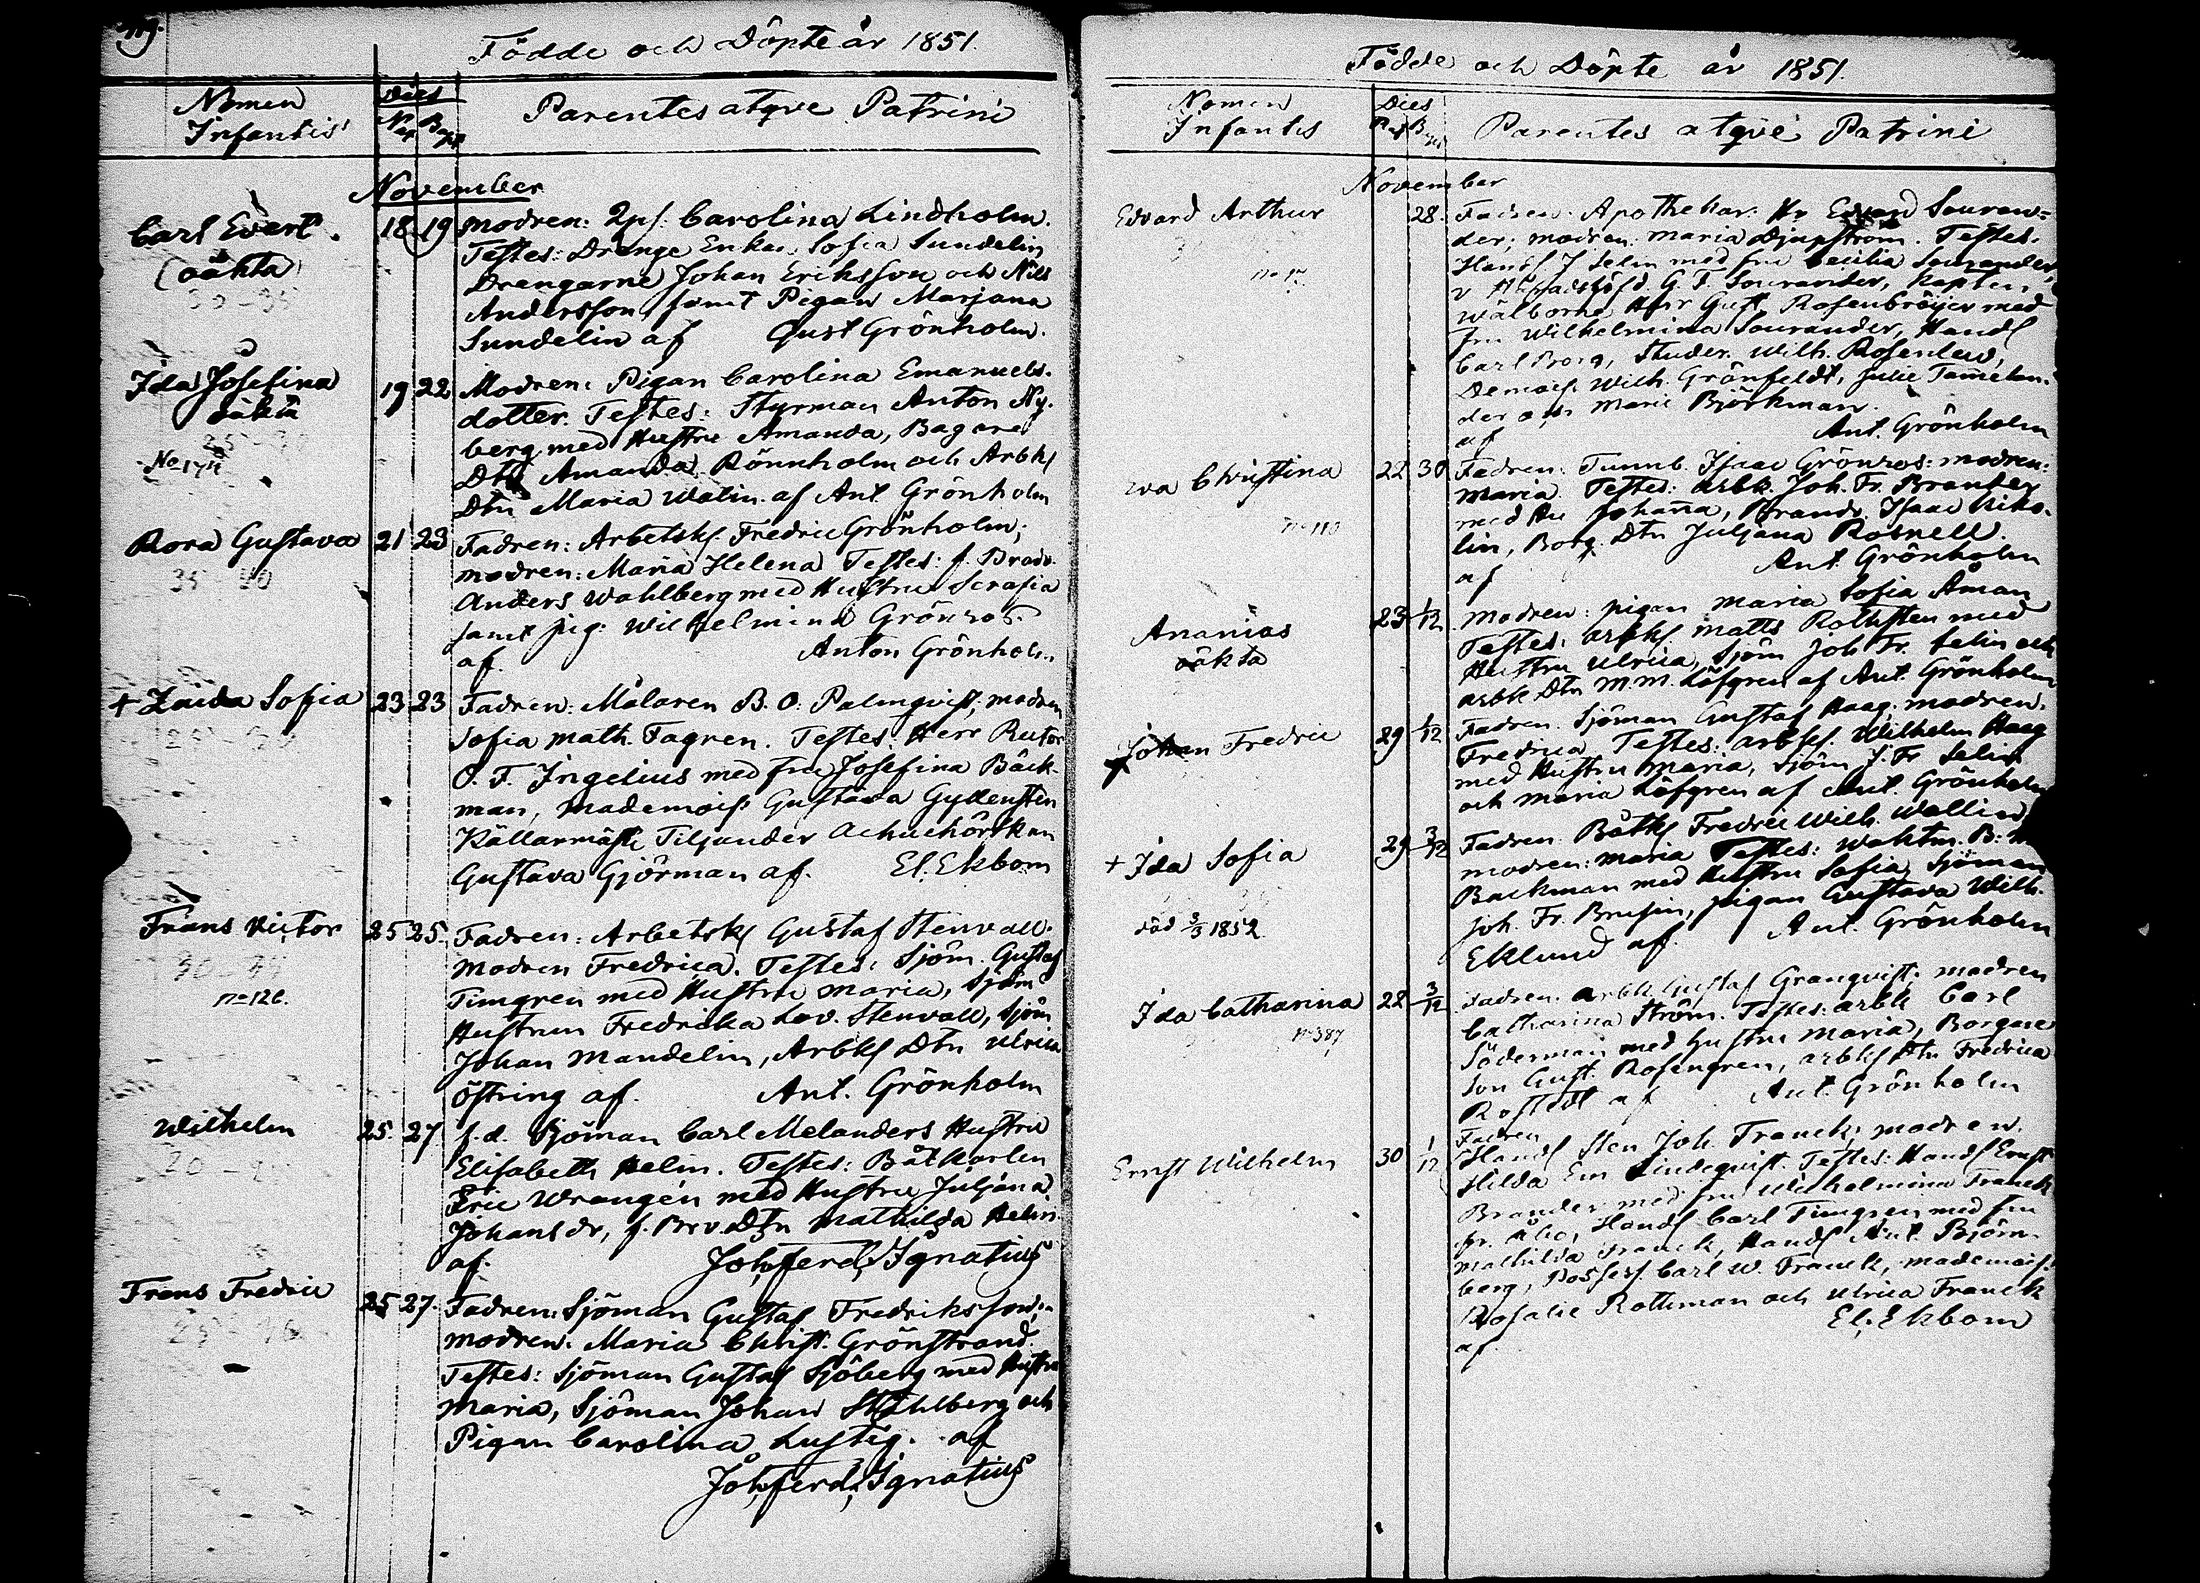 Födde och Döpte år 1851.
Nomen Infantis
Dies
Nat Bapt
Parentes atqve Patrini
November
Carl Evert.
(oäkta)
18 19 modren: Qps. Carolina Lindholm.
Testes: Drenge Enkan Sofia Sundelin
Drengarne Johan Ericksson och Nils
Andersson samt Pigan Marjana
Sundelin af Gust Grönholm.
Ida Josefina
oäkta
No 174
19 22 Modren: Pigan Carolina Emanuels-
dotter. Testes: Styrman Anton Ny-
berg med Hustru Amanda, Bagare
Dtr Amanda Rönnholm och Arbks
Dtn Maria Walin af Ant Grönholm
Rora Gustava
21 23 Fadren: Arbetsk Fredric Grönholm;
modren: Maria Helena Testes: f. Brodr.
Anders Wahlberg med Hustru Serafia
samt pig: Wilhelmina Grönros.
af. Anton Grönholm
+ Zaida Sofia
23 23 Fadren: Målaren B. O. Palmqvist; modren
Sofia Math. Fagren. Testes: Herr Rector
O. F. Ingelius med fru Josefina Bäck-
man, Mademois Gustava Gyllensten
Källarmäst Tiljander
Gustava Gjörman af. El. Ekbom
Frans Victor
no 126.
25 25 Fadren: Arbetsk Gustaf Stenvall.
Modren Fredrica. Testes: Sjöm. Gustaf
Timgren med Hustru Maria, Sjöm
Hustrun Fredrika Lov. Stenvall, Sjöm
Johan Mandelin, Arbks Dtn Ulrica
Östring af. Ant. Grönholm
Wilhelm
25. 27 f.d. Sjöman Carl Melanders Hustru
Elisabeth Helin. Testes: Båtkarlen
Eric Wrangén med Hustru Juljana
Johansdr, f. Brv. Dtn Mathilda Helin
af. Joh. ferd. Ignatius
Frans Fredric
25 27. Fadren: Sjöman Gustaf Fredriksson,
modren: Maria Christ. Grönstrand.
Testes: Sjöman Gustaf Sjöberg med Hustru
Maria, Sjöman Johan Ståhlberg och
Pigan Carolina Lustig. af
Joh. ferd. Ignatius
Födde och Döpte år 1851.
Nomen Infantis
Dies
Nat Bapt
Parentes atqve Patrini
November
Edvard Arthur
no 17
28. Fadren: Apothekar. Hr Edvard Souran-
der; modren: Maria Djupström. Testes:
Handl J Selin med fru Cecilia Sourander,
v Häradshöfd. G. F. Sourander, Kapten
wälborne Herr Gust. Rosenbröijer med
fru Wilhelmina Sourander, Handl
Carl Borg, Studer. Wilh. Rosenlew,
Demois. Wilh. Grönfeldt, Julie Tammelan-
der och Marie Björkman.
af Ant. Grönholm
wa Christina
no 113
22 30 Fadren: Tunnb. Isaac Grönros: modren:
Maria. Testes: Arbk. Joh. Fr. Brander
med Hu Johanna, Brandv. Isaac Niko-
lin, Borg. Dtn Juljana Rosnell.
af Ant. Grönholm
Ananias
oäkta
23 1/12 Modren: pigan Maria Sofia Åman
Testes: arbks Matts Rothsten med
Hustru Ulrica, Sjöm Joh Fr. Selin och
arbk Dtn M.M. Löfgren af Ant. Grönholm
Johan Fredric
29 1/12 Fadren. Sjöman Gustaf Haag; modren:
Fredrica Testes: arbks Wilhelm Haag
med Hustru Maria, Sjöm J. Fr Selin
och Maria Löfgren af Ant. Grönholm
+ Ida Sofia
död 3/3 1852.
29 3/12 Fadren: Båtks Fredric Wilh. Wallin,
modren: Maria Testes: Waktm. B. M
Backman med Hustru Sofia, Sjöman
Joh. Fr. Brusin, pigan Gustava Wilh.
Eklund af. Ant. Grönholm
Ida Catharina
no 387
22 3/12 Fadren. arbk. Gustaf Granqvist; modren
Catharina Ström. Testes: arbk Carl
Söderman med Hustru Maria, Borgare
Son Gust. Rosengren, arbks Dtn Fredrica
Rostedt af Ant. Grönholm
Ernst Wilhelm
30 1/12 Fadren
Handl Sten Joh. Franck; modren.
Hilda Em Lindeqvist. Testes: Handl Ernst
Brander med fru Wilhelmina Franck
fr. Åbo, Handl Carl Timgren med fru
Mathilda Franck, Handl Ant. Björn-
berg, Possess. Carl W. Franck, mademois.
Rosalie Rothman och Ulrica Franck
af El. Ekbom